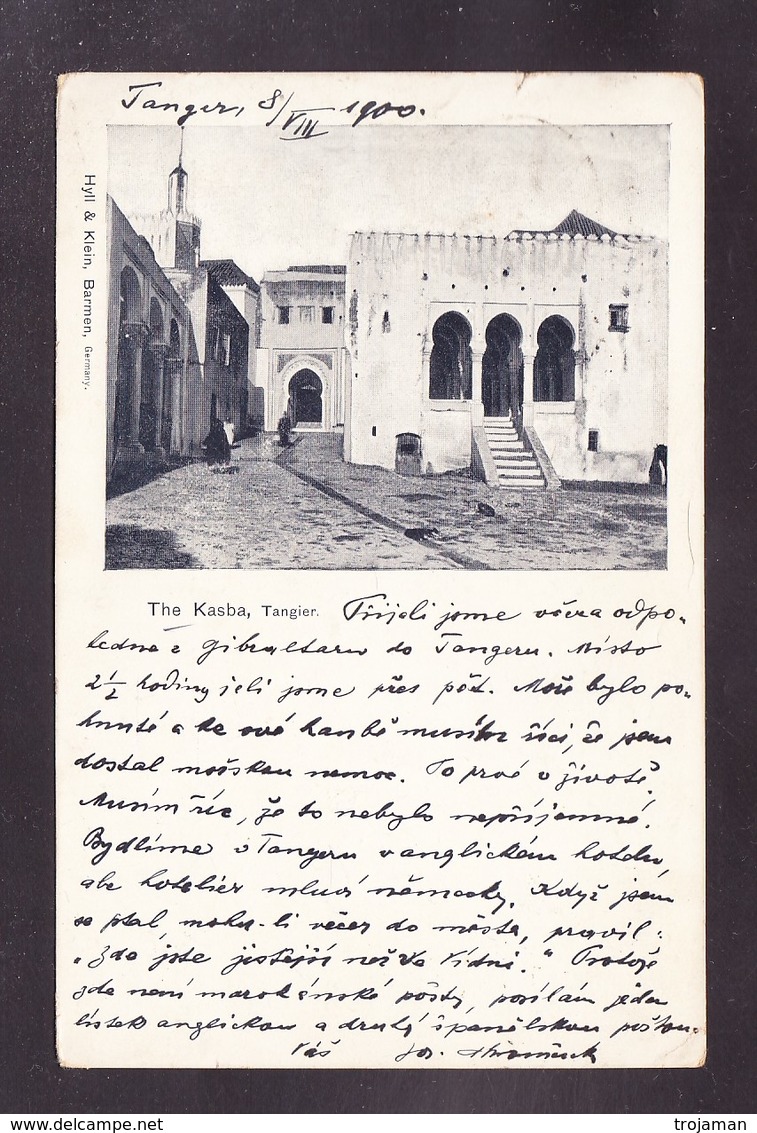 Tanger, 8/VIII 1900.
Hyll & Klein, Barmen, Germany.
The Kasba, Tangier. Přijeli jsme včera odpo-
ledne z Gibraltaru do Tangeru. Místo
2½ hodiny jeli jsme přes pět. Moře bylo po-
hnuté a ke své hanbě musím říci, že jsem
dostal mořskou nemoc. To prvé v životě.
Musím říc, že to nebylo nepříjemné.
Bydlíme v Tangeru v anglickém hotelu,
ale hoteliér mluví německy. Když jsem
se ptal, mohu-li večer do města, pravil:
"Zde jste jistější než ve Vídni." Protože
zde není marokánské pošty, posílám jeden
lístek anglickou a druhý španělskou poštou.
Váš Jos.
delcampe.net
trojaman